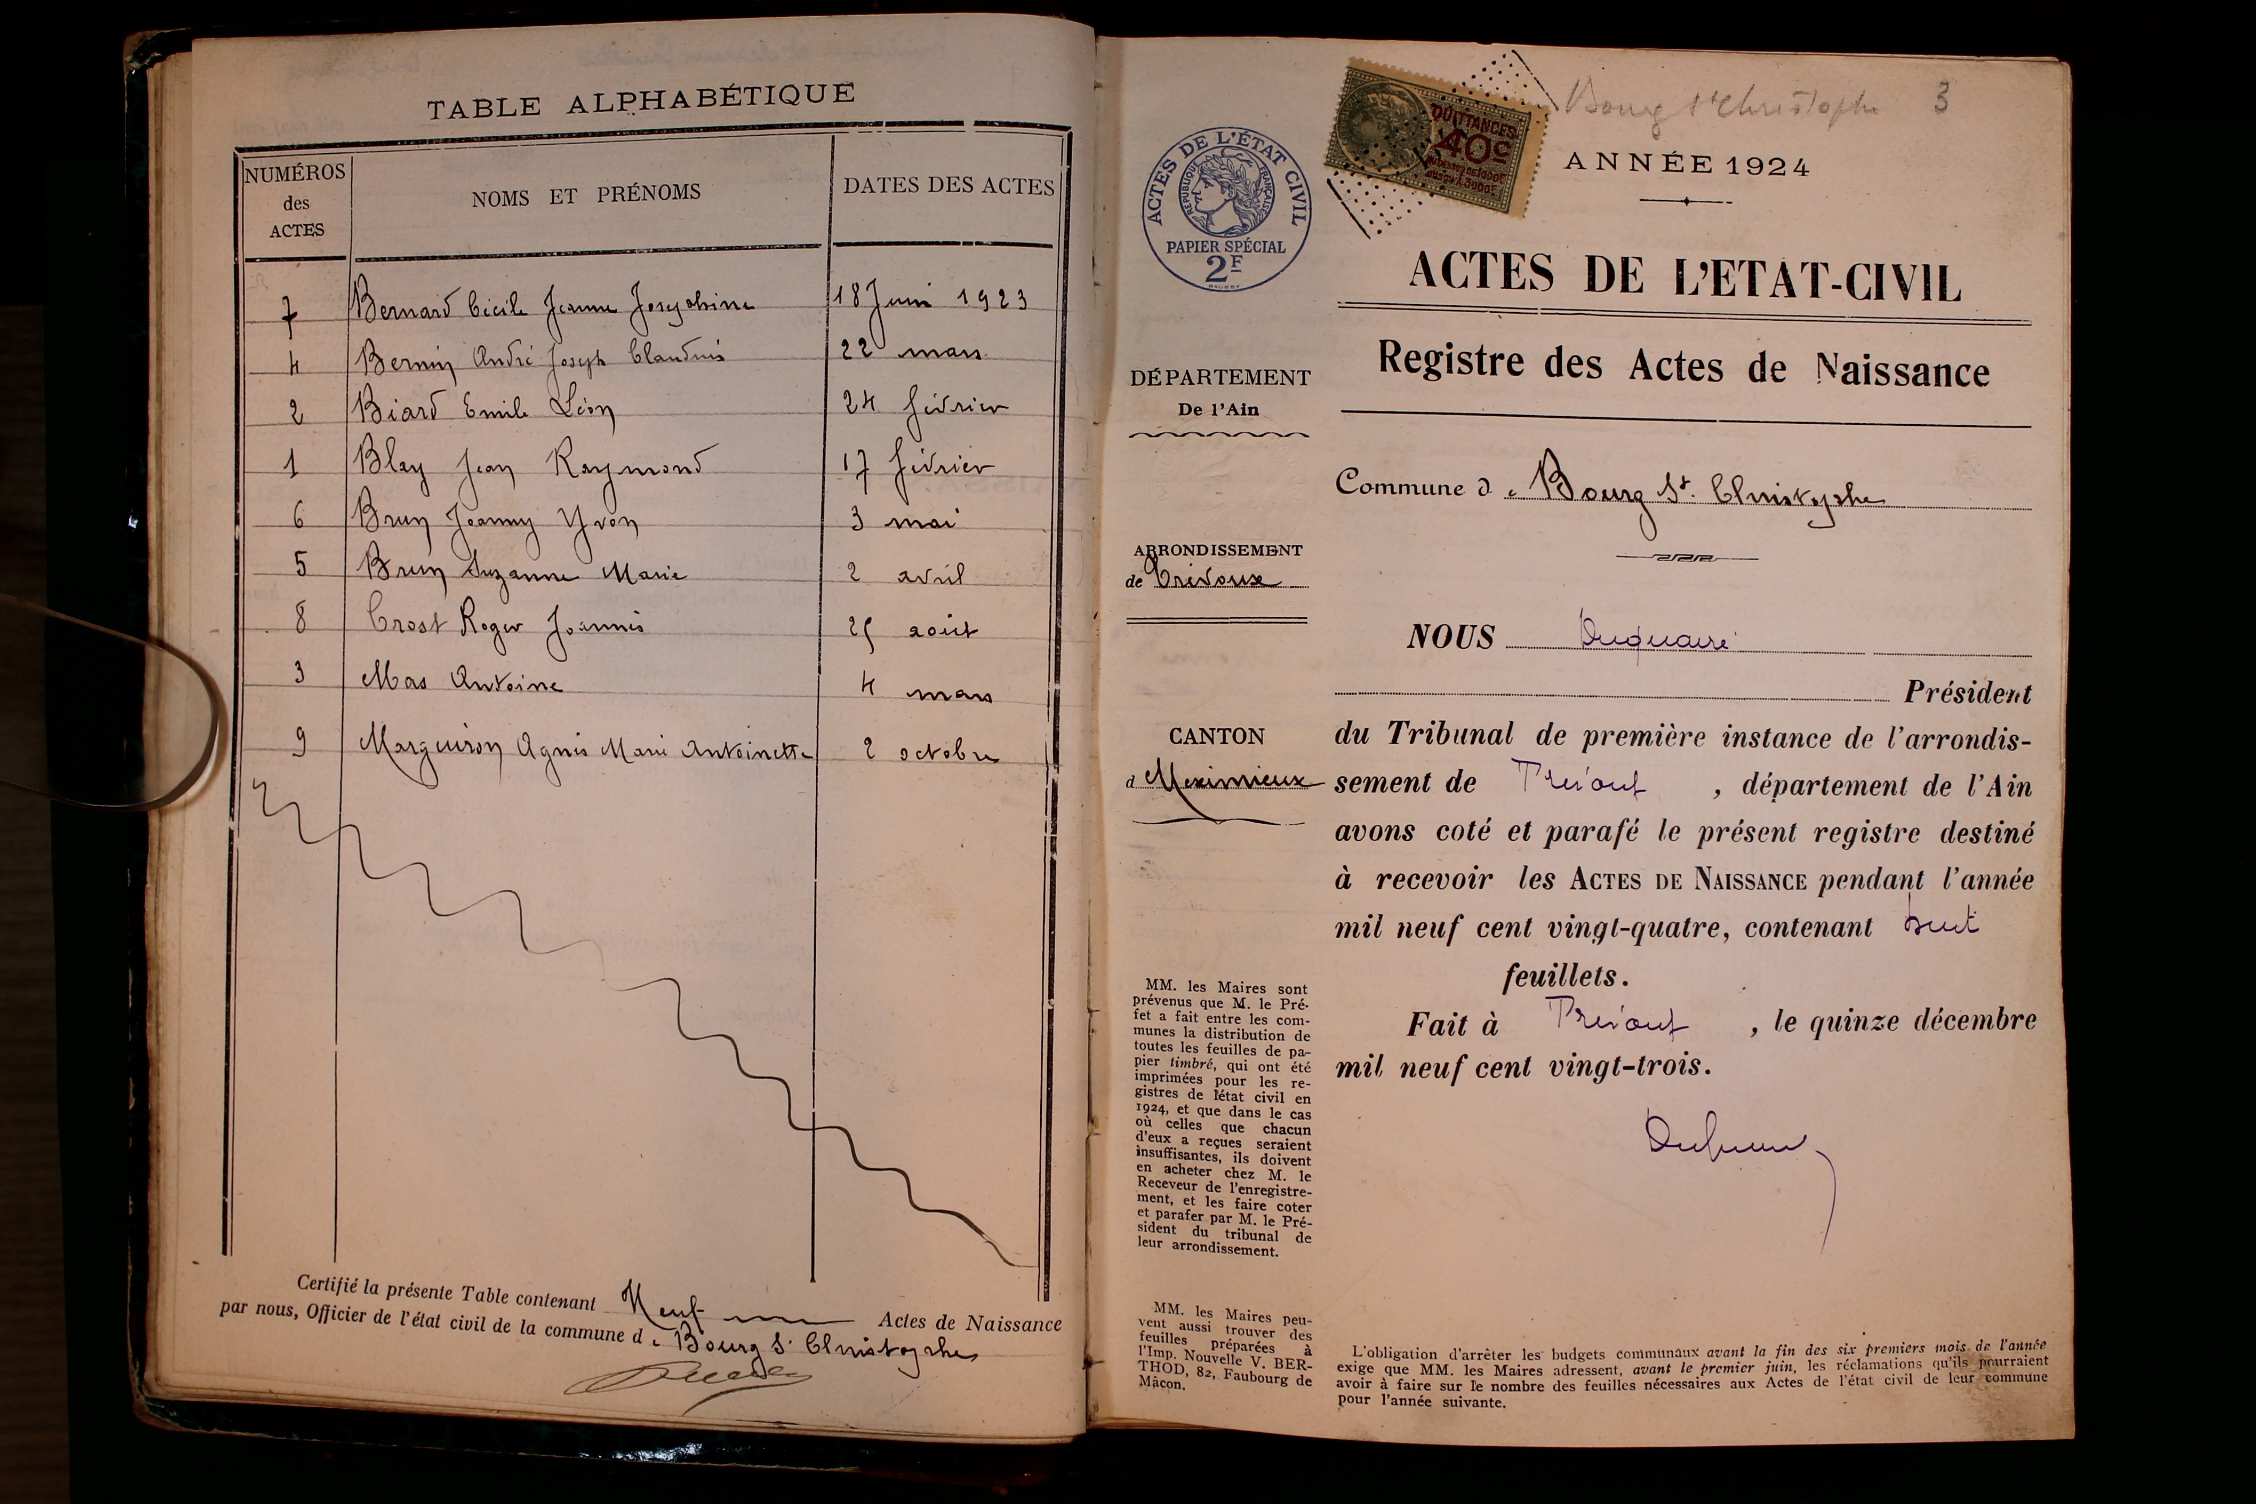 TABLE ALPHABÉTIQUE
NUMÉROS des ACTES
NOMS ET PRÉNOMS
DATES DES ACTES
7 Bernard Cécile Jeanne Josephine 18 Juin 1923
4 Bernin André Joseph Claudius 22 mars
2 Biard Emile Léon 24 février
1 Blay Jean Raymond 17 février
6 Brun Joanny Yvon 3 mai
5 Brun Suzanne Marie 2 avril
8 Crost Roger Joannès 25 août
3 Mas Antoine 4 mars
9 Marguiron Agnès Marie Antoinette 2 octobre
Certifié la présente Table contenant Neuf Actes de Naissance
par nous, Officier de l'état civil de la commune de Bourg St Christophe
Bourg St Christophe 3
QUITTANCES
40c
ACTES DE L'ÉTAT CIVIL
RÉPUBLIQUE FRANÇAISE
PAPIER SPÉCIAL
2F
ANNÉE 1924
ACTES DE L'ETAT-CIVIL
Registre des Actes de Naissance
DÉPARTEMENT
De l'Ain
Commune de Bourg St. Christophe
ARRONDISSEMENT
de Trévoux
CANTON
d Meximieux
NOUS Duquaire
Président
du Tribunal de première instance de l'arrondis-
sement de Trévoux, département de l'Ain
avons coté et parafé le présent registre destiné
à recevoir les ACTES DE NAISSANCE pendant l'année
mil neuf cent vingt-quatre, contenant huit
feuillets.
Fait à Trévoux, le quinze décembre
mil neuf cent vingt-trois.
MM. les Maires sont
prévenus que M. le Pré-
fet a fait entre les com-
munes la distribution de
toutes les feuilles de pa-
pier timbré, qui ont été
imprimées pour les re-
gistres de l'état civil en
1924, et que dans le cas
où celles que chacun
d'eux a reçues seraient
insuffisantes, ils doivent
en acheter chez M. le
Receveur de l'enregistre-
ment, et les faire coter
et parafer par M. le Pré-
sident du tribunal de
leur arrondissement.
MM. les Maires peu-
vent aussi trouver des
feuilles préparées à
l'Imp. Nouvelle V. BER-
THOD, 82, Faubourg de
Mâcon.
L'obligation d'arrêter les budgets communaux avant la fin des six premiers mois de l'année
exige que MM. les Maires adressent, avant le premier juin, les réclamations qu'ils pourraient
avoir à faire sur le nombre des feuilles nécessaires aux Actes de l'état civil de leur commune
pour l'année suivante.